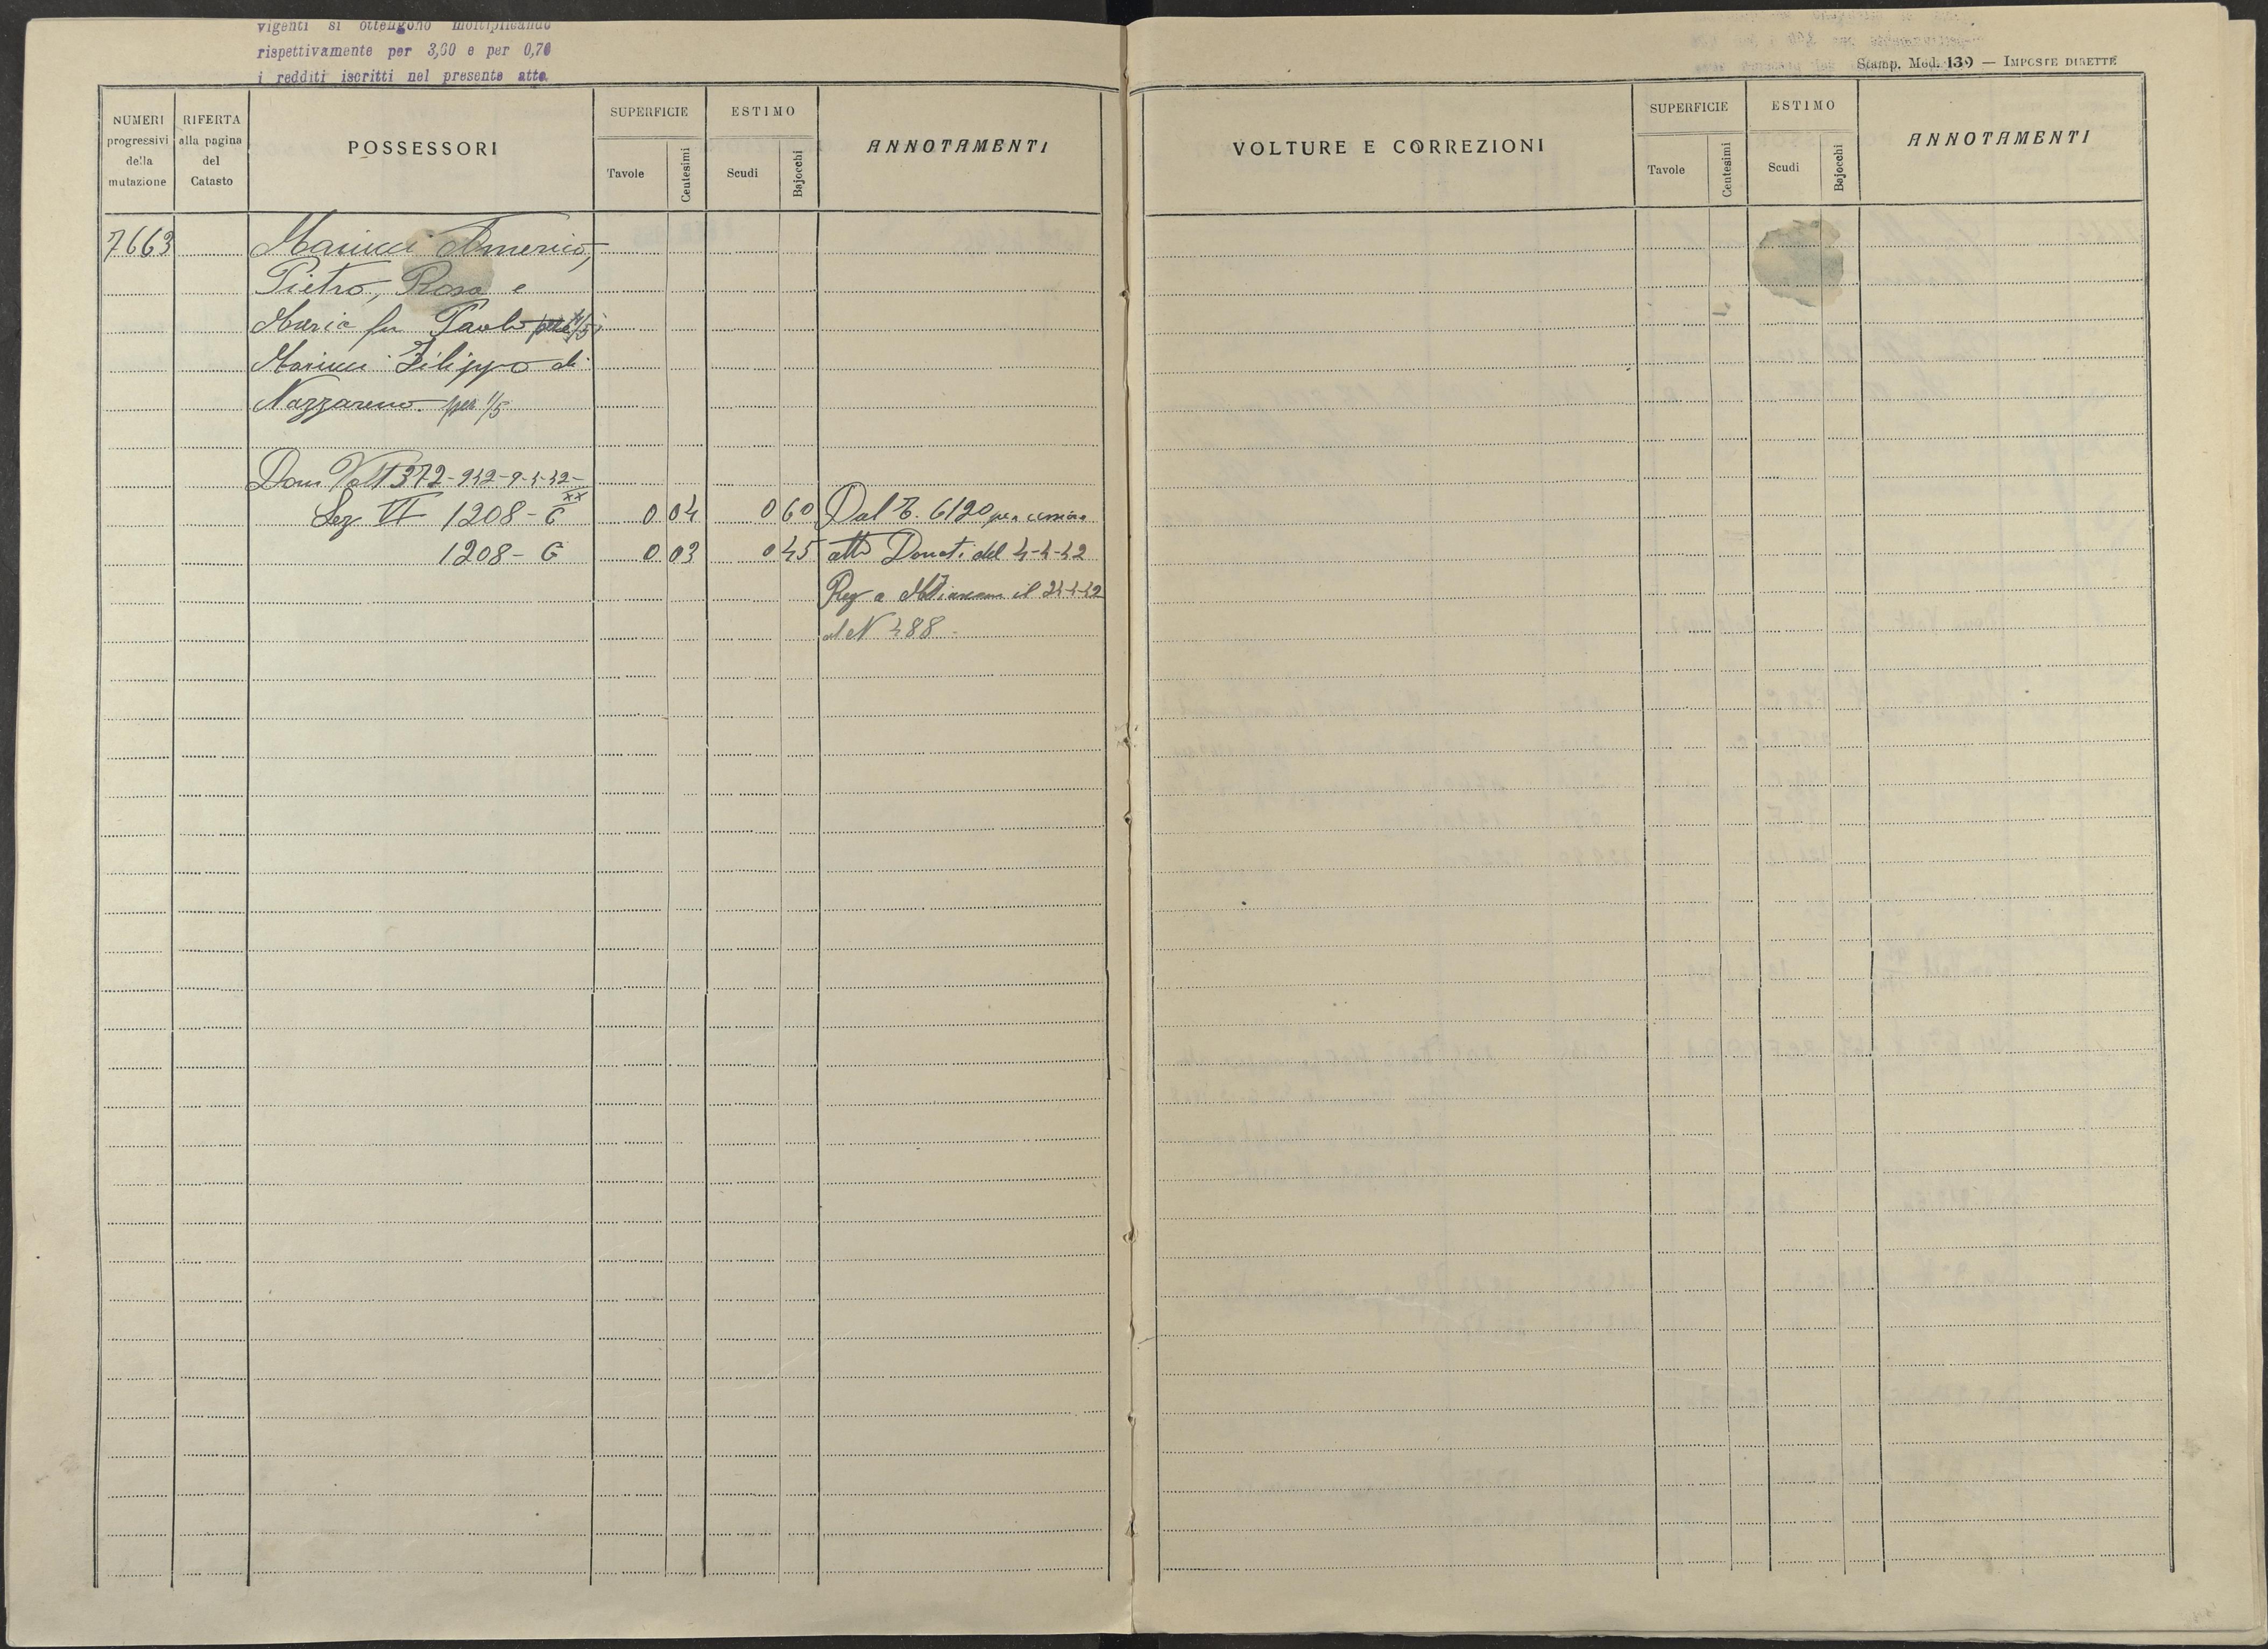 vigenti si ottengono moltiplicando
rispettivamente per 3,60 e per 0,70
i redditi iscritti nel presente atto.
Stamp. Mod. 139 — IMPOSTE DIRETTE
NUMERI progressivi della mutazione
RIFERTA alla pagina del Catasto
POSSESSORI
SUPERFICIE
Tavole
Centesimi
ESTIMO
Scudi
Bajocchi
ANNOTAMENTI
VOLTURE E CORREZIONI
SUPERFICIE
Tavole
Centesimi
ESTIMO
Scudi
Bajocchi
ANNOTAMENTI
7663 Marinci Americo,
Pietro, Rosa e
Maria fu Paolo per 4/5
Marinci Filippo di
Nazzareno per 1/5
Dom Volt 372-942-9-4-42-
Sez VI 1208-C xx 0 04 0 60 Dal T. 6120 per cessione
1208-G 0 03 0 45 atto Donati del 4-4-42
Reg a il 24-4-42
al N 488